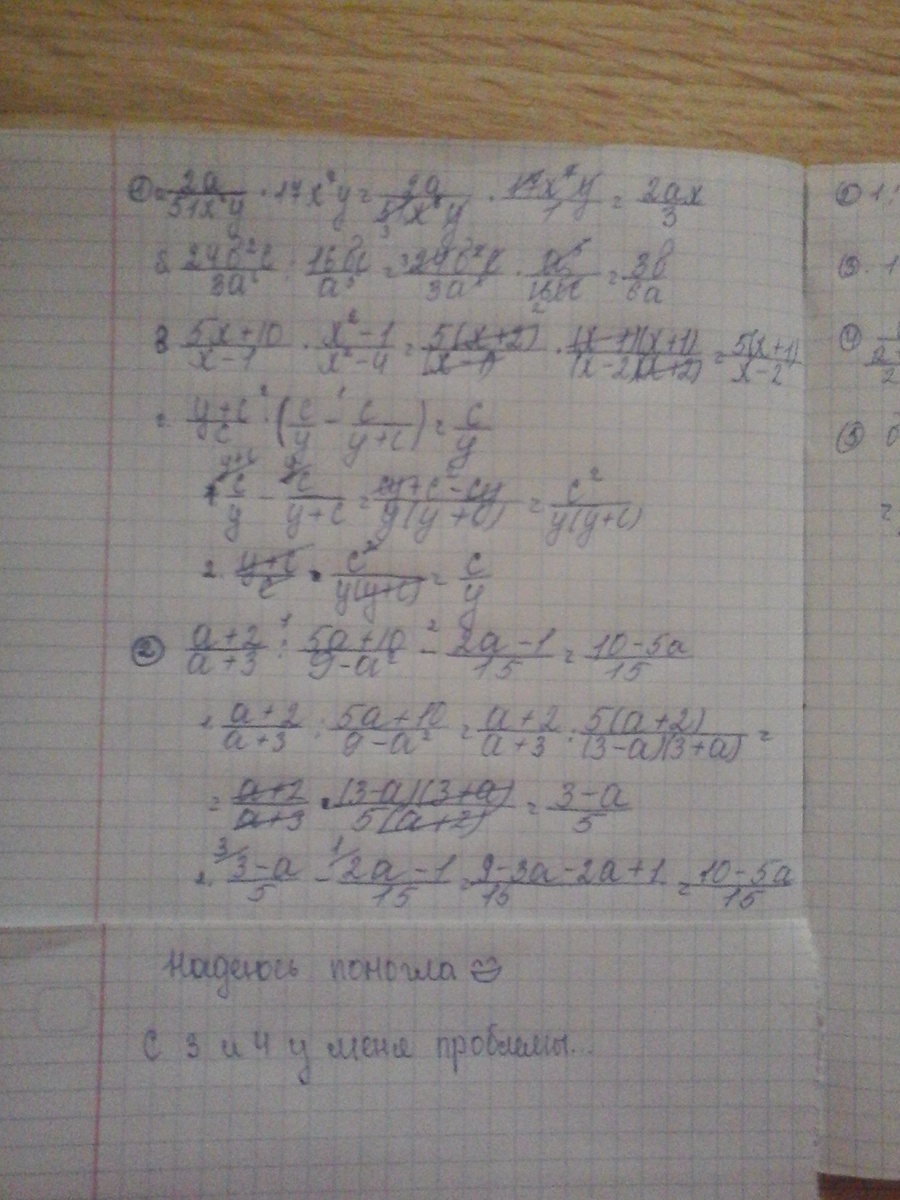 ① = 2a/51x²y · 17x²y = 2a/51x²y · 17x²y/1 = 2ax/3
24b²c/3a : 16bc/a = 24b²c/3a · /16bc = 3b/6a
в 5x+10/x-1 · x²-1/x²-4 = 5(x+2)/(x-1) · (x-1)(x+1)/(x-2)(x+2) = 5(x+1)/x-2
г y+c/c · (c/y - c/y+c) = c/y
1. c/y - c/y+c = cy+c²-cy/y(y+c) = c²/y(y+c)
2. y+c/c · c²/y(y+c) = c/y
② a+2/a+3 : 5a+10/9-a² - 2a-1/15 = 10-5a/15
1. a+2/a+3 : 5a+10/9-a² = a+2/a+3 : 5(a+2)/(3-a)(3+a) =
= a+2/a+3 · (3-a)(3+a)/5(a+2) = 3-a/5
2. 3-a/5 - 2a-1/15 = 9-3a-2a+1/15 = 10-5a/15
Надеюсь помогла
С 3 и 4 у меня проблемы...